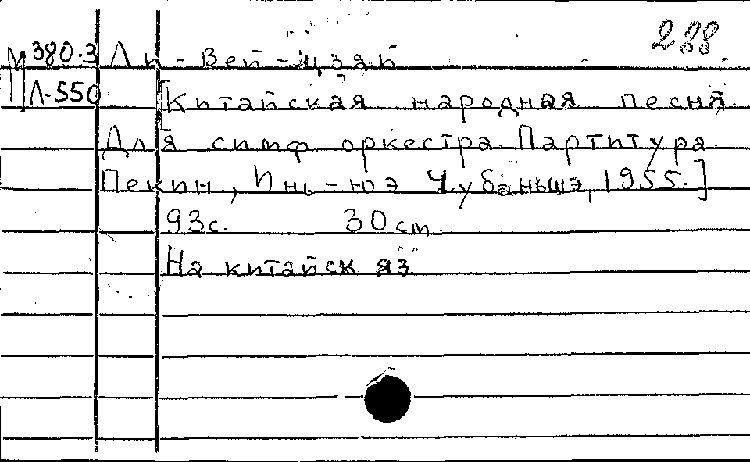 288
М 380.3 Ли-Вей-цзай
Л-550 [Китайская народная песня
Для симф оркестра. Партитура
Пекин, Инь-юэ Чубаньшэ, 1955.]
93с. 30 cm
На китайск яз